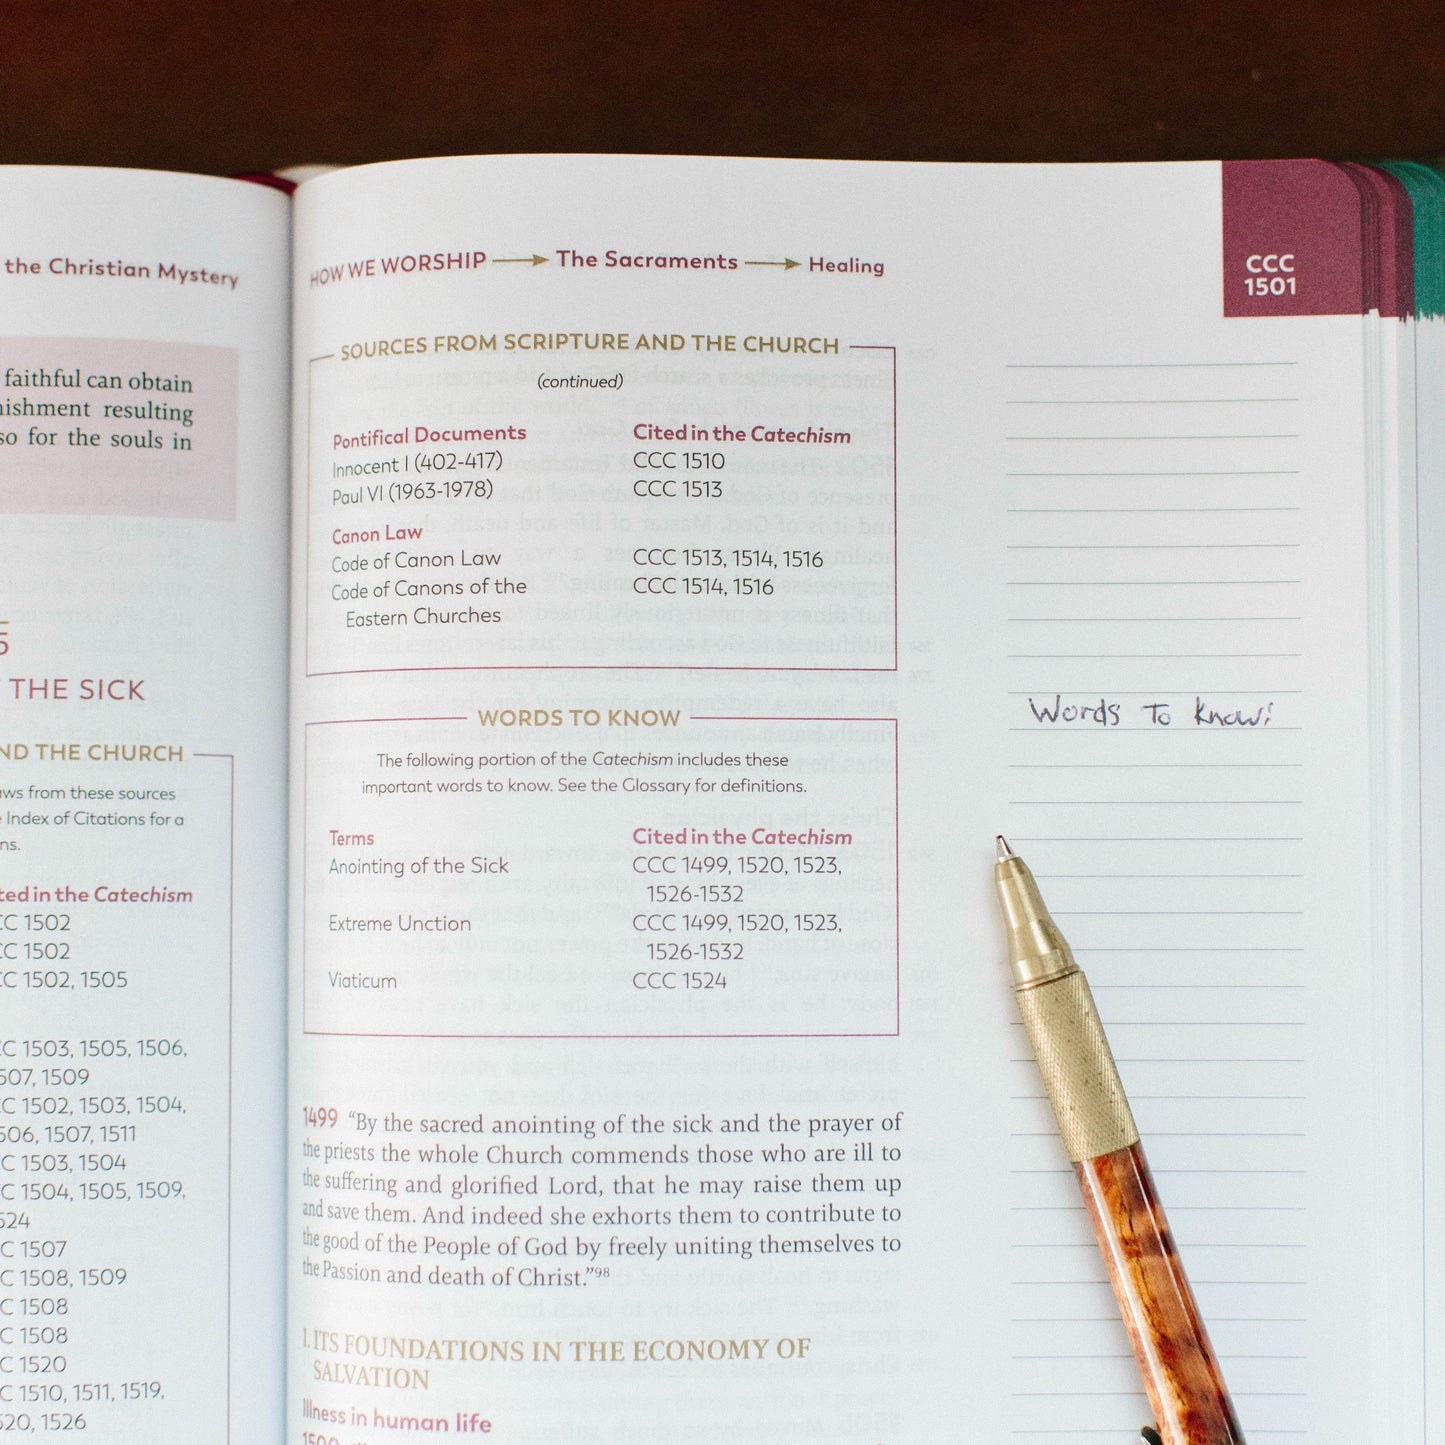 the Christian Mystery
faithful can obtain
resulting
so for the souls in
5
THE SICK
AND THE CHURCH
from these sources
Index of Citations for a
Cited in the Catechism
CCC 1502
CCC 1502
CCC 1502, 1505
CCC 1503, 1505, 1506,
1507, 1509
CCC 1502, 1503, 1504,
1506, 1507, 1511
CCC 1503, 1504
CCC 1504, 1505, 1509,
1524
CCC 1507
CCC 1508, 1509
CCC 1508
CCC 1508
CCC 1520
CCC 1510, 1511, 1519,
1520, 1526
HOW WE WORSHIP The Sacraments Healing
CCC
1501
SOURCES FROM SCRIPTURE AND THE CHURCH
(continued)
Pontifical Documents Cited in the Catechism
Innocent I (402-417) CCC 1510
Paul VI (1963-1978) CCC 1513
Canon Law
Code of Canon Law CCC 1513, 1514, 1516
Code of Canons of the CCC 1514, 1516
Eastern Churches
WORDS TO KNOW
The following portion of the Catechism includes these
important words to know. See the Glossary for definitions.
Terms Cited in the Catechism
Anointing of the Sick CCC 1499, 1520, 1523,
1526-1532
Extreme Unction CCC 1499, 1520, 1523,
1526-1532
Viaticum CCC 1524
Words To Know:
1499 “By the sacred anointing of the sick and the prayer of
the priests the whole Church commends those who are ill to
the suffering and glorified Lord, that he may raise them up
and save them. And indeed she exhorts them to contribute to
the good of the People of God by freely uniting themselves to
the Passion and death of Christ.”98
I. ITS FOUNDATIONS IN THE ECONOMY OF
SALVATION
Illness in human life
1500